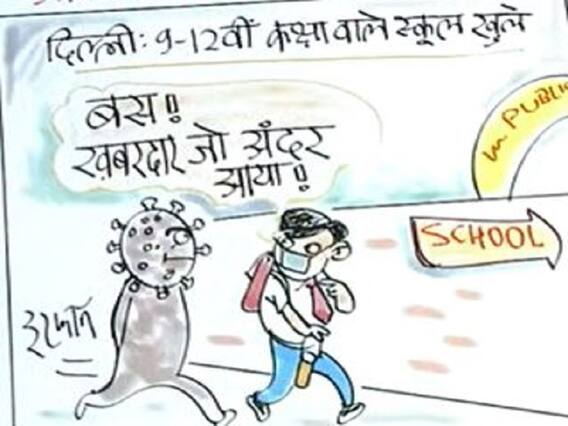 दिल्ली: 9-12वीं कक्षा वाले स्कूल खुले
बस!!
ख़बरदार जो अंदर
आया!!
m. PUBLIC
SCHOOL
इरफ़ान